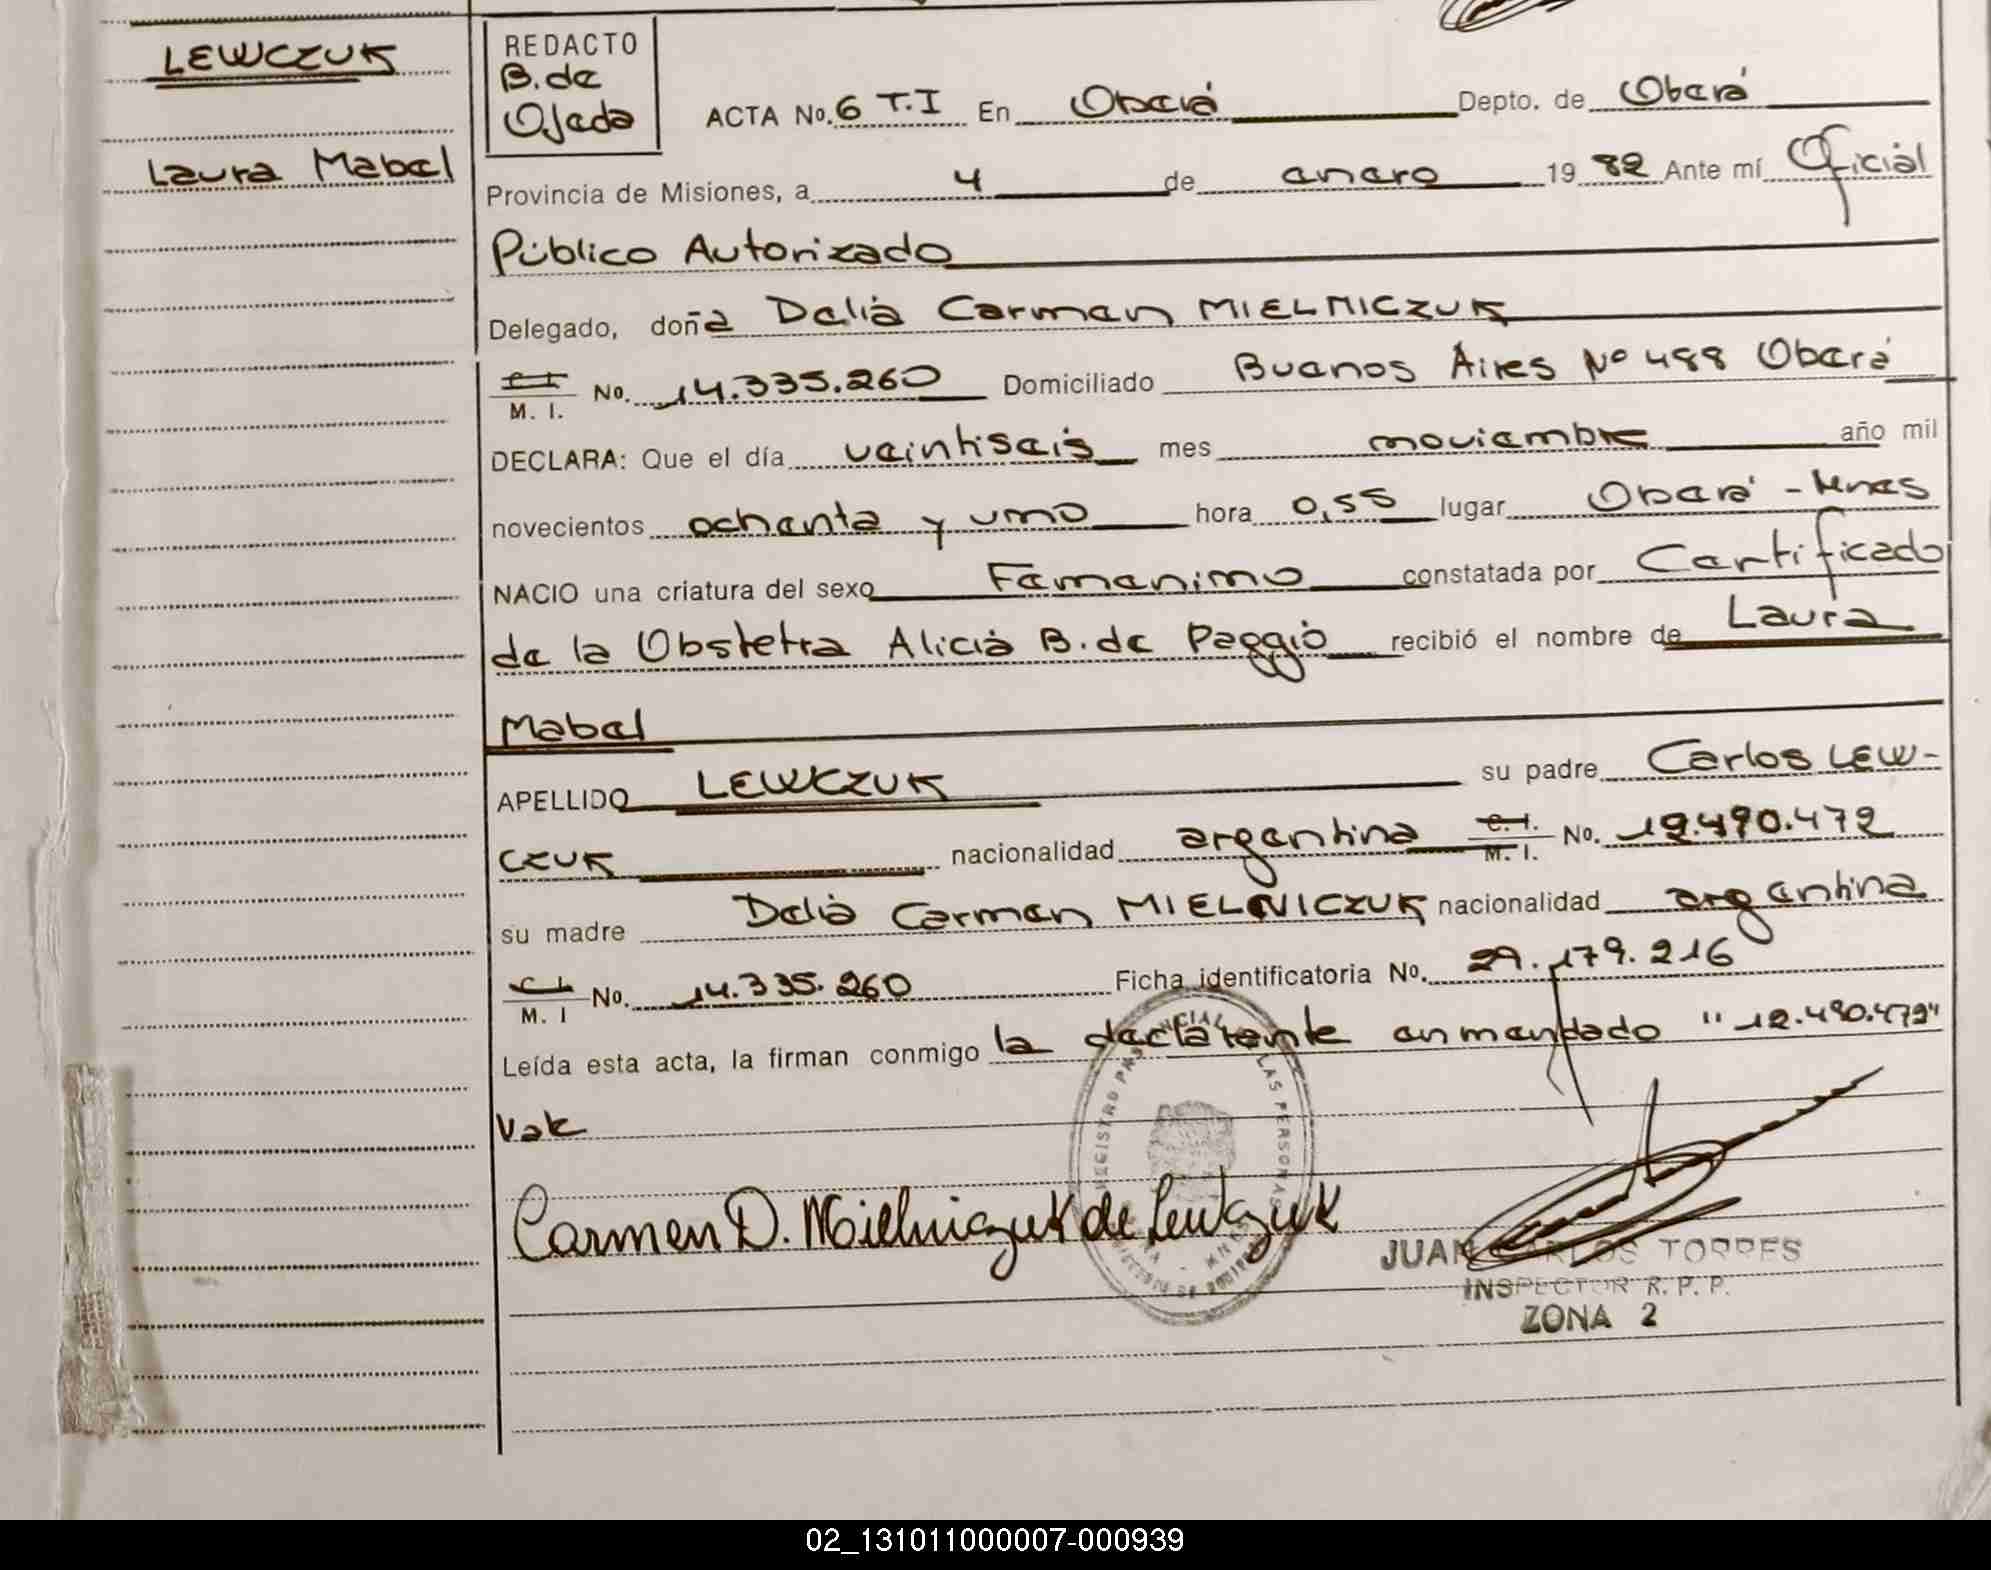 LEWCZUK
Laura Mabel
REDACTO
B. de
Ojeda
ACTA No. 6 T.I En Oberá Depto. de Oberá
Provincia de Misiones, a 4 de enero 1982 Ante mí Oficial
Público Autorizado
Delegado, doña Delia Carmen MIELNICZUK
C.I.
M. I. No. 14.335.260 Domiciliado Buenos Aires Nº 488 Oberá
DECLARA: Que el día veintiseis mes noviembre año mil
novecientos ochenta y uno hora 0,55 lugar Oberá - Mnes
NACIO una criatura del sexo Femenino constatada por Certificado
de la Obstetra Alicia B. de Paggio recibió el nombre de Laura
Mabel
APELLIDO LEWCZUK su padre Carlos LEW-
CZUK nacionalidad argentina C.I. M. I. No. 12.490.472
su madre Delia Carmen MIELNICZUK nacionalidad argentina
C.I.
M. I No. 14.335.260 Ficha identificatoria No. 29.179.216
Leída esta acta, la firman conmigo la declarante enmendado "12.490.472"
Vale
Carmen D. Mielniczuk de Lewczuk
REGISTRO PROVINCIAL DE LAS PERSONAS
JUAN CARLOS TORRES
INSPECTOR R. P. P.
ZONA 2
02_131011000007-000939